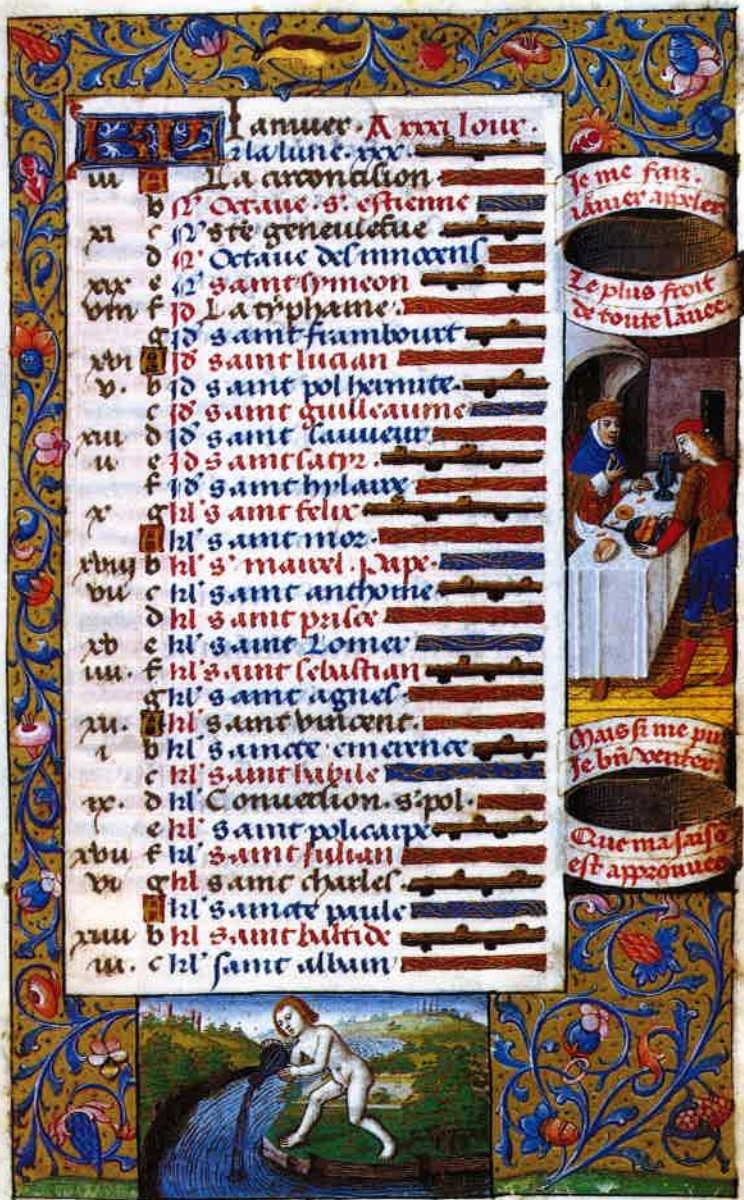 KL Januier. A xxxi Iour.
Et la lune. xxx.
iii A La circoncision
b N' Octaue. s. estienne
xi c N' ste geneuiefue
d N' Octaue des innocens
xix e N' saint symeon
viii f id La typhaine.
g id saint frambourt
xvi A id saint lucian
v. b id saint pol hermite.
c id saint guilleaume
xiii d id saint sauueur
ii e id saint satir.
f id saint hylaire
x g kl' saint felix
A kl' saint mor.
xviii b kl' s' maurel. pape.
vii c kl' saint anthoine
d kl' saint prisce
xb e kl' saint Lomer
iiii. f kl' saint sebastian
g kl' saint agnes
xii. A kl' saint vincent.
i b kl' saincte emerence
c kl' saint babile
ix. d kl' Conuersion. s. pol.
e kl' saint policarpe
xvii f kl' saint julian
vi g kl saint charles.
A kl' saincte paule
xiiii b kl saint baltide
iii. c kl' saint albain
Je me fais.
iâuier appeler
Le plus froit
de toute lânee.
Mais si me puis
Je bn venter
Que ma saiso
est approuuee